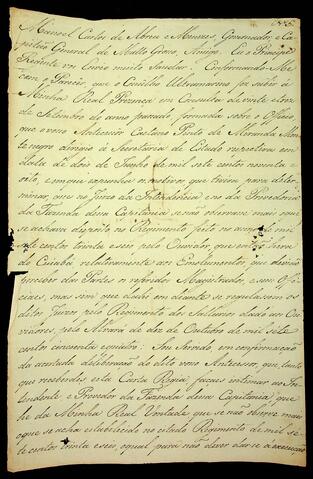 Manoel Carlos de Abreu e Menezes, Governador, e Ca-
pitão General de Matto Grosso, Amigo. Eu o Principe
Regente vos Envio muito Saudar. Conformando-Me
com o Parecer, que o Conselho Ultramarino fez subir á
Minha Real Prezença em Consulta de vinte e tres
de Setembro do anno passado formada sobre o Officio
que o vosso Antecessor Caetano Pinto de Miranda Mon-
tenegro dirigio á Secretaria de Estado respectiva em
data de dois de Junho de mil sete centos noventa e
oito, em que expunha os motivos que tivera para deter-
minar, que no Juizo da Intendencia e no da Provedoria
da Fazenda dessa Capitania se não observasse mais o que
se achava disposto no Regimento feito no anno de mil
sete centos trinta e seis pelo Ouvidor, que então era
de Cuiabá relativamente aos Emolumentos, que devião
perceber das Partes o referido Magistrado, e seus Offi-
ciaes, mas sim que dahi em deante se regulassem os
ditos Juizos pelo Regimento dos Sallarios dado aos Ou-
vidores, pelo Alvará de dez de Outubro de mil sete
centos cincoenta e quatro: Sou Servido, em confirmação
da acertada deliberação do dito vosso Antecessor, que, tanto
que receberdes esta Carta Regia, façaes intimar ao In-
tendente e Provedor da Fazenda dessa Capitania que
he da Minha Real Vontade que se não observe mais
o que se acha estabelecido no citado Regimento de mil se-
te centos trinta e seis, o qual para não dever dar-se á execução